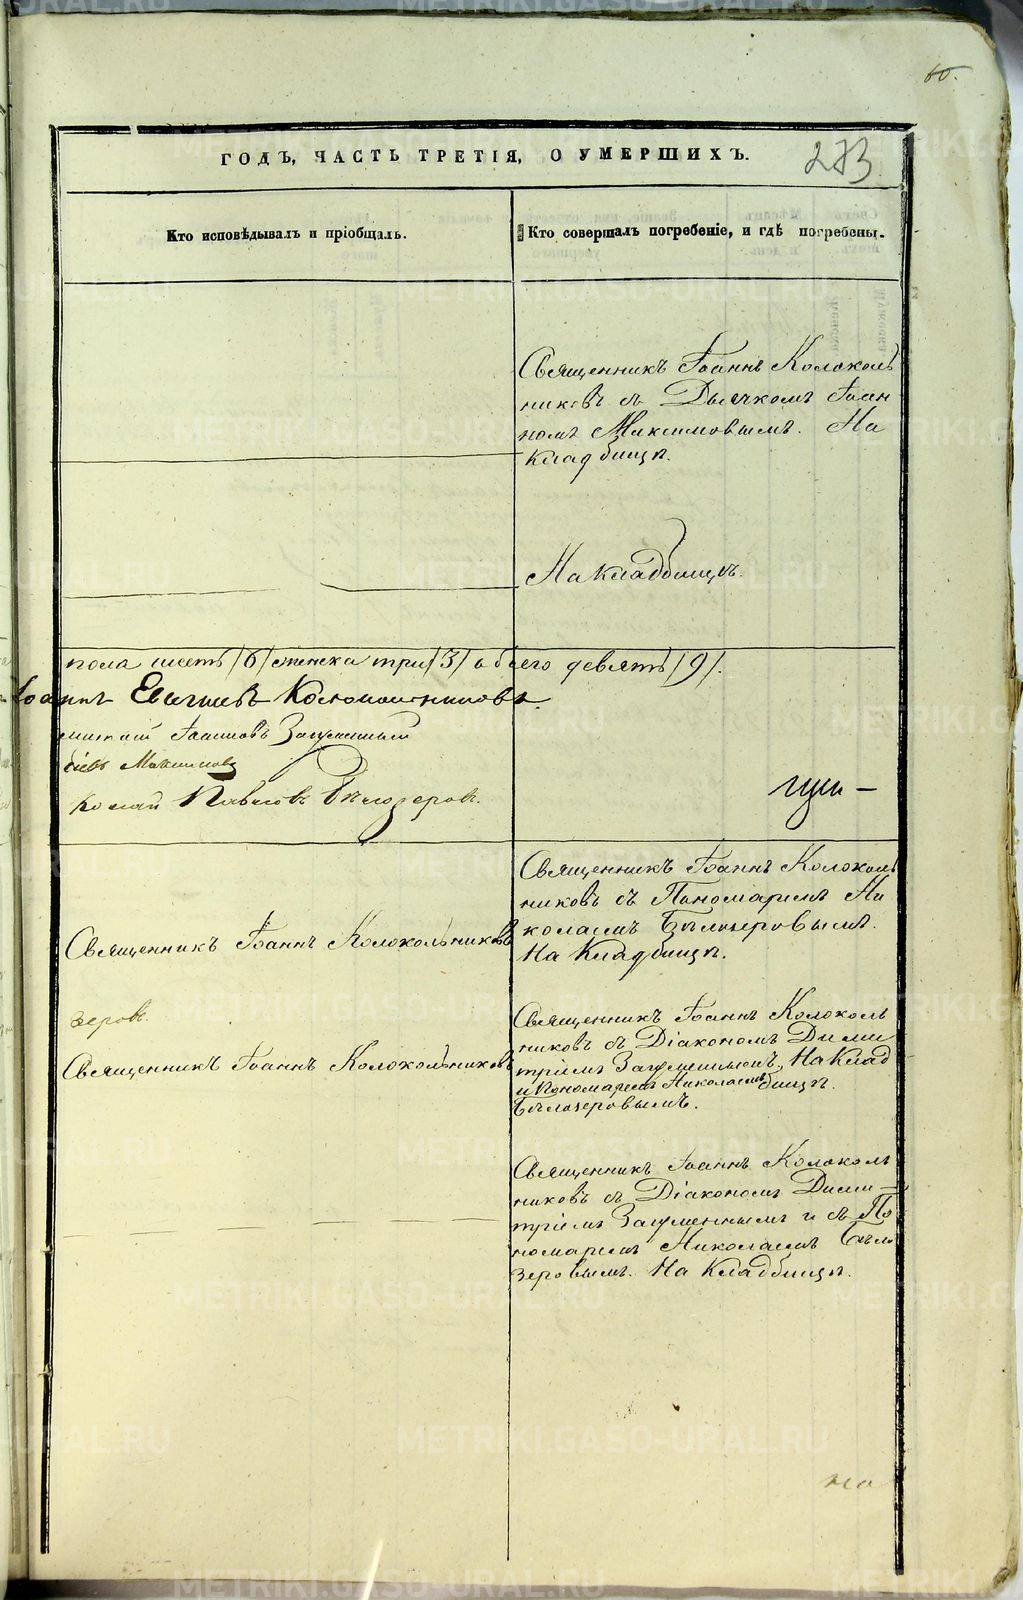 60.
ГОДЪ, ЧАСТЬ ТРЕТІЯ, О УМЕРШИХЪ.
273
Кто исповѣдывалъ и пріобщалъ.
Кто совершалъ погребеніе, и гдѣ погребены.
Священникъ Іоаннъ Колоколь
никовъ съ Дьячкомъ Іоан
номъ Максимовымъ. На
кладбищѣ.
На кладбищѣ.
пола шесть /6/ женска три /3/ обоего девять /9/.
Іоаннъ Колокольниковъ.
Іоанновъ Загуменный
Максимовъ
колай Павловъ Бѣлозеровъ.
Священникъ Іоаннъ Колоколь
никовъ съ Пономаремъ Ни
колаемъ Бѣлозеровымъ.
На Кладбищѣ.
Священникъ Іоаннъ Колокольниковъ
зеровъ.
Священникъ Іоаннъ Колокольниковъ
Священникъ Іоаннъ Колоколь
никовъ съ Діакономъ Дими
тріемъ Загуменнымъ, На Клад
и Пономаремъ Николаемъ бищѣ.
Бѣлозеровымъ.
Священникъ Іоаннъ Колоколь
никовъ съ Діакономъ Дими
тріемъ Загуменнымъ и съ По
номаремъ Николаемъ Бѣло
зеровымъ. На Кладбищѣ.
на
METRIKI.GASO-URAL.RU